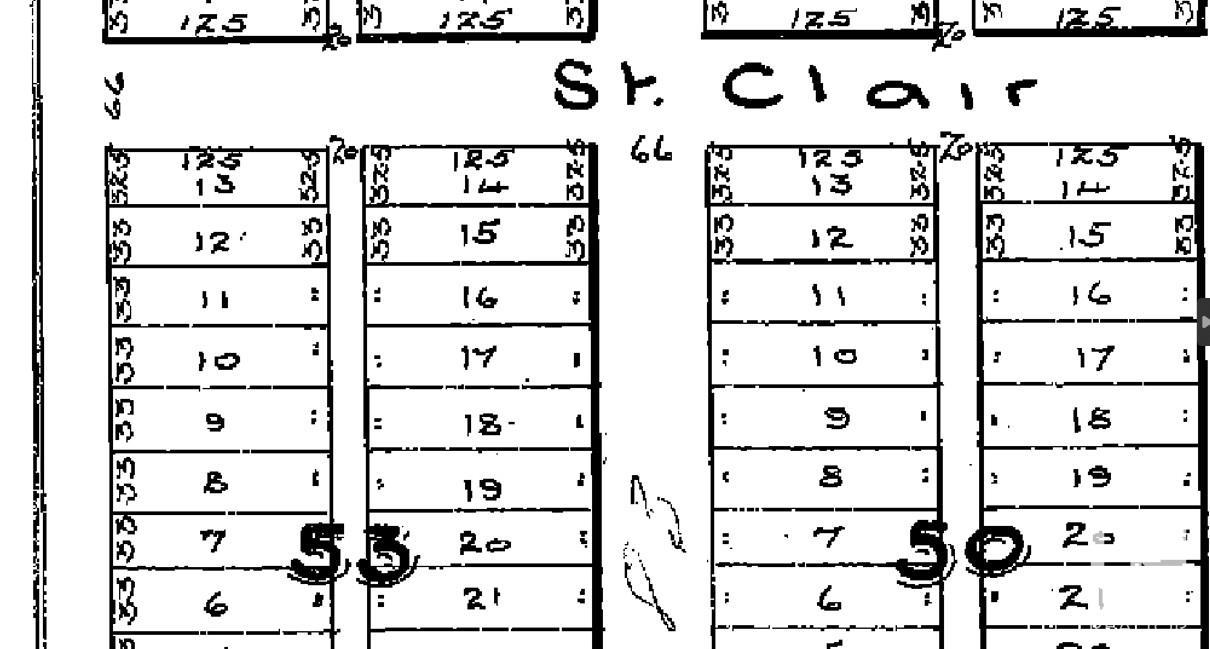 125 125 125 125
20 20
66
St. Clair
20 66 20
125 125 125 125
32.5 13 32.5 32.5 14 32.5 32.5 13 32.5 32.5 14 32.5
33 12 33 33 15 33 33 12 33 33 15 33
33 11 16 11 16
33 10 17 10 17
33 9 18 9 18
33 8 19 8 19
33 7 20 7 20
53 50
33 6 21 6 21